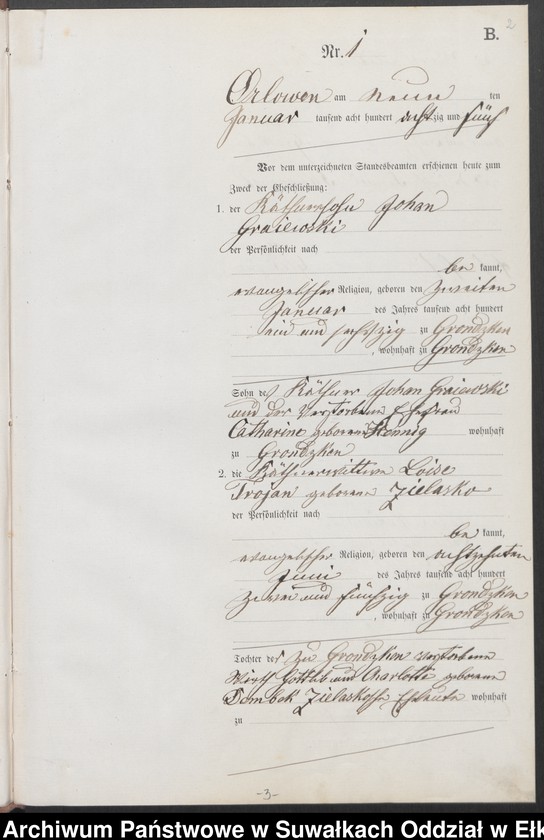 2
B.
Nr. 1
Orlowen am neun ten
Januar tausend acht hundert achtzig und fünf
Vor dem unterzeichneten Standesbeamten erschienen heute zum
Zweck der Eheschließung:
1. der Käthnersohn Johan
Graiewski
der Persönlichkeit nach
be kannt,
evangelischer Religion, geboren den zweiten
Januar des Jahres tausend acht hundert
ein und sechszig zu Grondzken
, wohnhaft zu Grondzken
Sohn des Käthner Johan Graiewski
und der verstorbenen Ehefrau
Catharine geborene Hennig wohnhaft
zu Grondzken
2. die Käthnerwittwe Loise
Trojan geborene Zielasko
der Persönlichkeit nach
be kannt,
evangelischer Religion, geboren den achtzehnten
Juni des Jahres tausend acht hundert
zwei und fünfzig zu Grondzken
, wohnhaft zu Grondzken
Tochter der zu Grondzken verstorbene
Wirth Gottlib und Charlotte geborene
Dombek Zielaskosche Eheleute wohnhaft
zu
-3-
Archiwum Państwowe w Suwałkach Oddział w Ełk